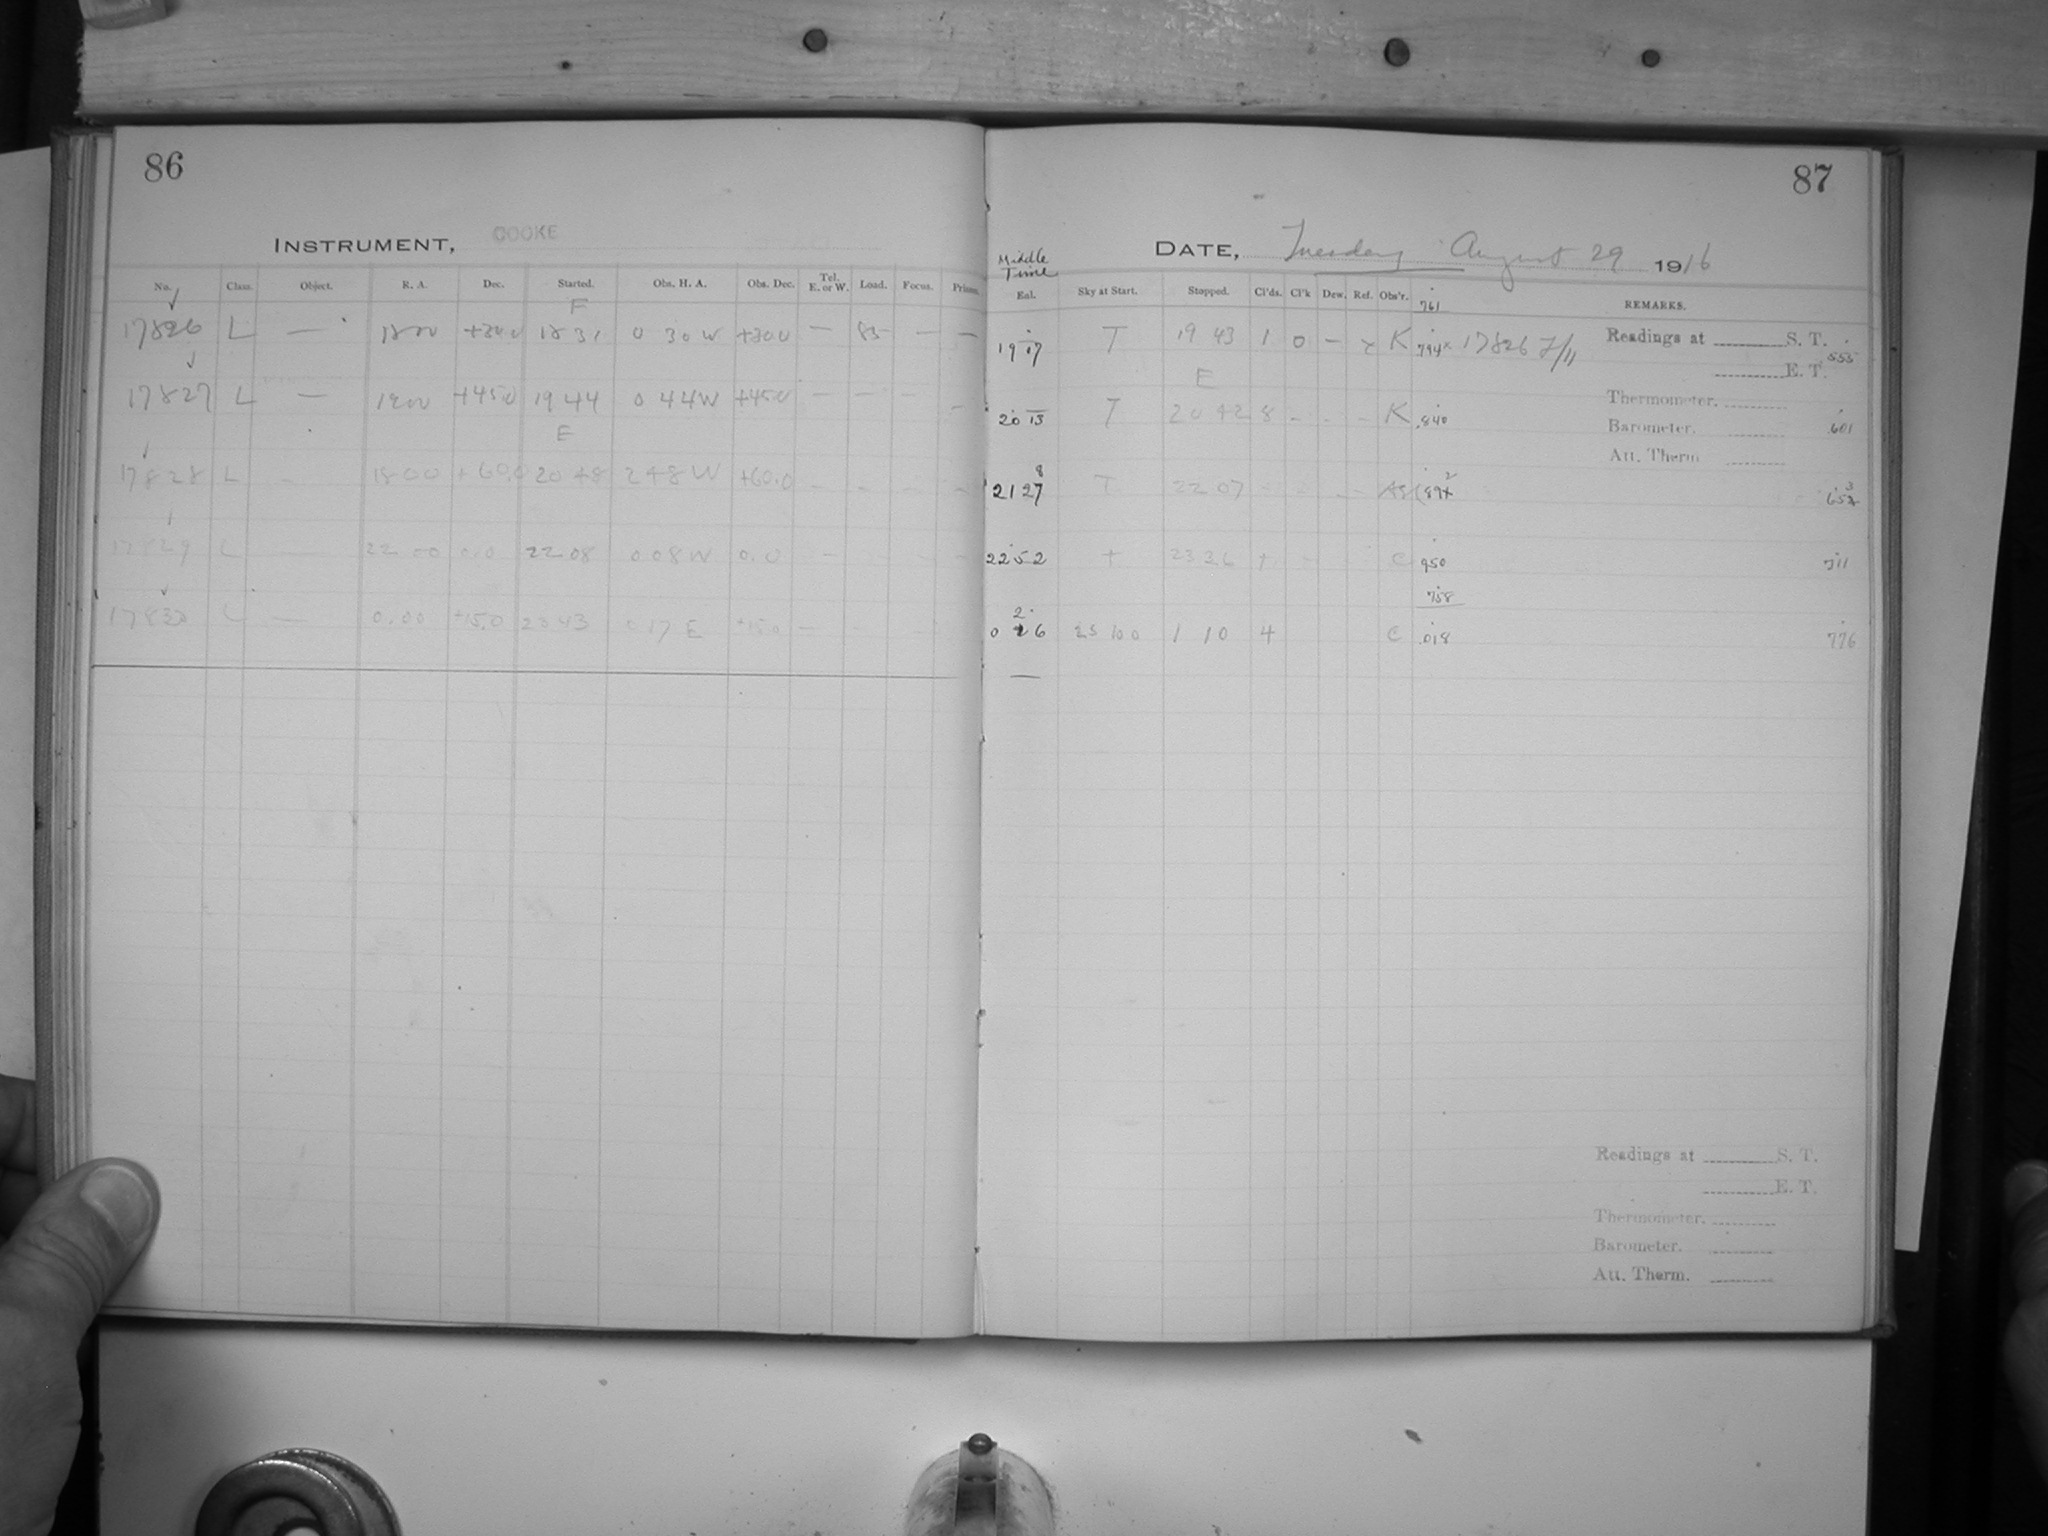 86
INSTRUMENT, COOKE
No. Class. Object. R. A. Dec. Started. Obs. H. A. Obs. Dec. Tel. E. or W. Load. Focus. Prism.
17826 L — 18 00 +30.0 18 31 0 30 W +30.0 — 85 — —
17827 L — 19 00 +45.0 19 44 0 44 W +45.0 — — — —
E
17828 L - 18 00 +60.0 20 48 2 48 W +60.0 - - - -
17829 L — 22 00 0.0 22 08 0 08 W 0.0 —
17830 L — 0.00 +15.0 23 43 0 17 E +15.0 —
87
DATE, Tuesday August 29 1916
Middle Time
Eal. Sky at Start. Stopped. Cl'ds. Cl'k Dew. Ref. Obs'r. REMARKS.
761
19 07 T 19 43 1 0 — K .794 17826 Readings at S. T. .555
E E. T.
Thermometer.
20 13 T 20 42 8 - - - K .840 Barometer. .601
Att. Therm
21 27 T 22 07
22 52 + 23 36 C 950 711
758
0 26 1 10 4 C .018 776
Readings at S. T.
E. T.
Thermometer.
Barometer.
Att. Therm.